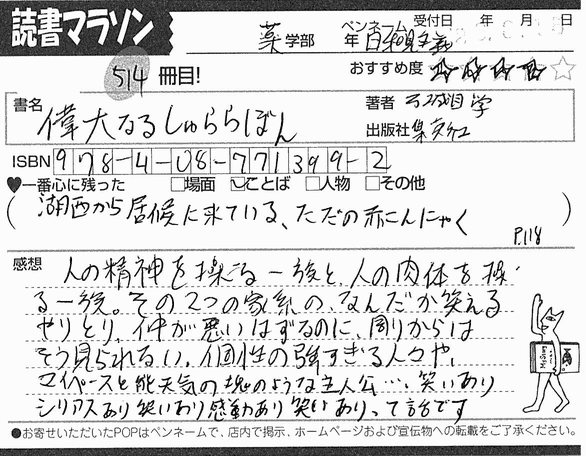 読書マラソン
薬学部 年 ペンネーム 日和見主義 受付日 年 月 日
514冊目!
おすすめ度 ★★★★☆
書名 偉大なるしゅららぼん
著者 万城目学
出版社 集英社
ISBN 978-4-08-771399-2
♥一番心に残った □場面 ☑ことば □人物 □その他
(湖西から居候に来ている、ただの赤こんにゃく P.118)
感想 人の精神を操る一族と、人の肉体を操
る一族。その2つの家系の、なんだか笑える
やりとり、仲が悪いはずなのに、周りからは
そう見られない、個性の強すぎる人々や、
マイペースと能天気の塊のような主人公…、笑いあり
シリアスあり笑いあり感動あり笑いありって話です
●お寄せいただいたPOPはペンネームで、店内で掲示、ホームページおよび宣伝物への転載をご了承ください。